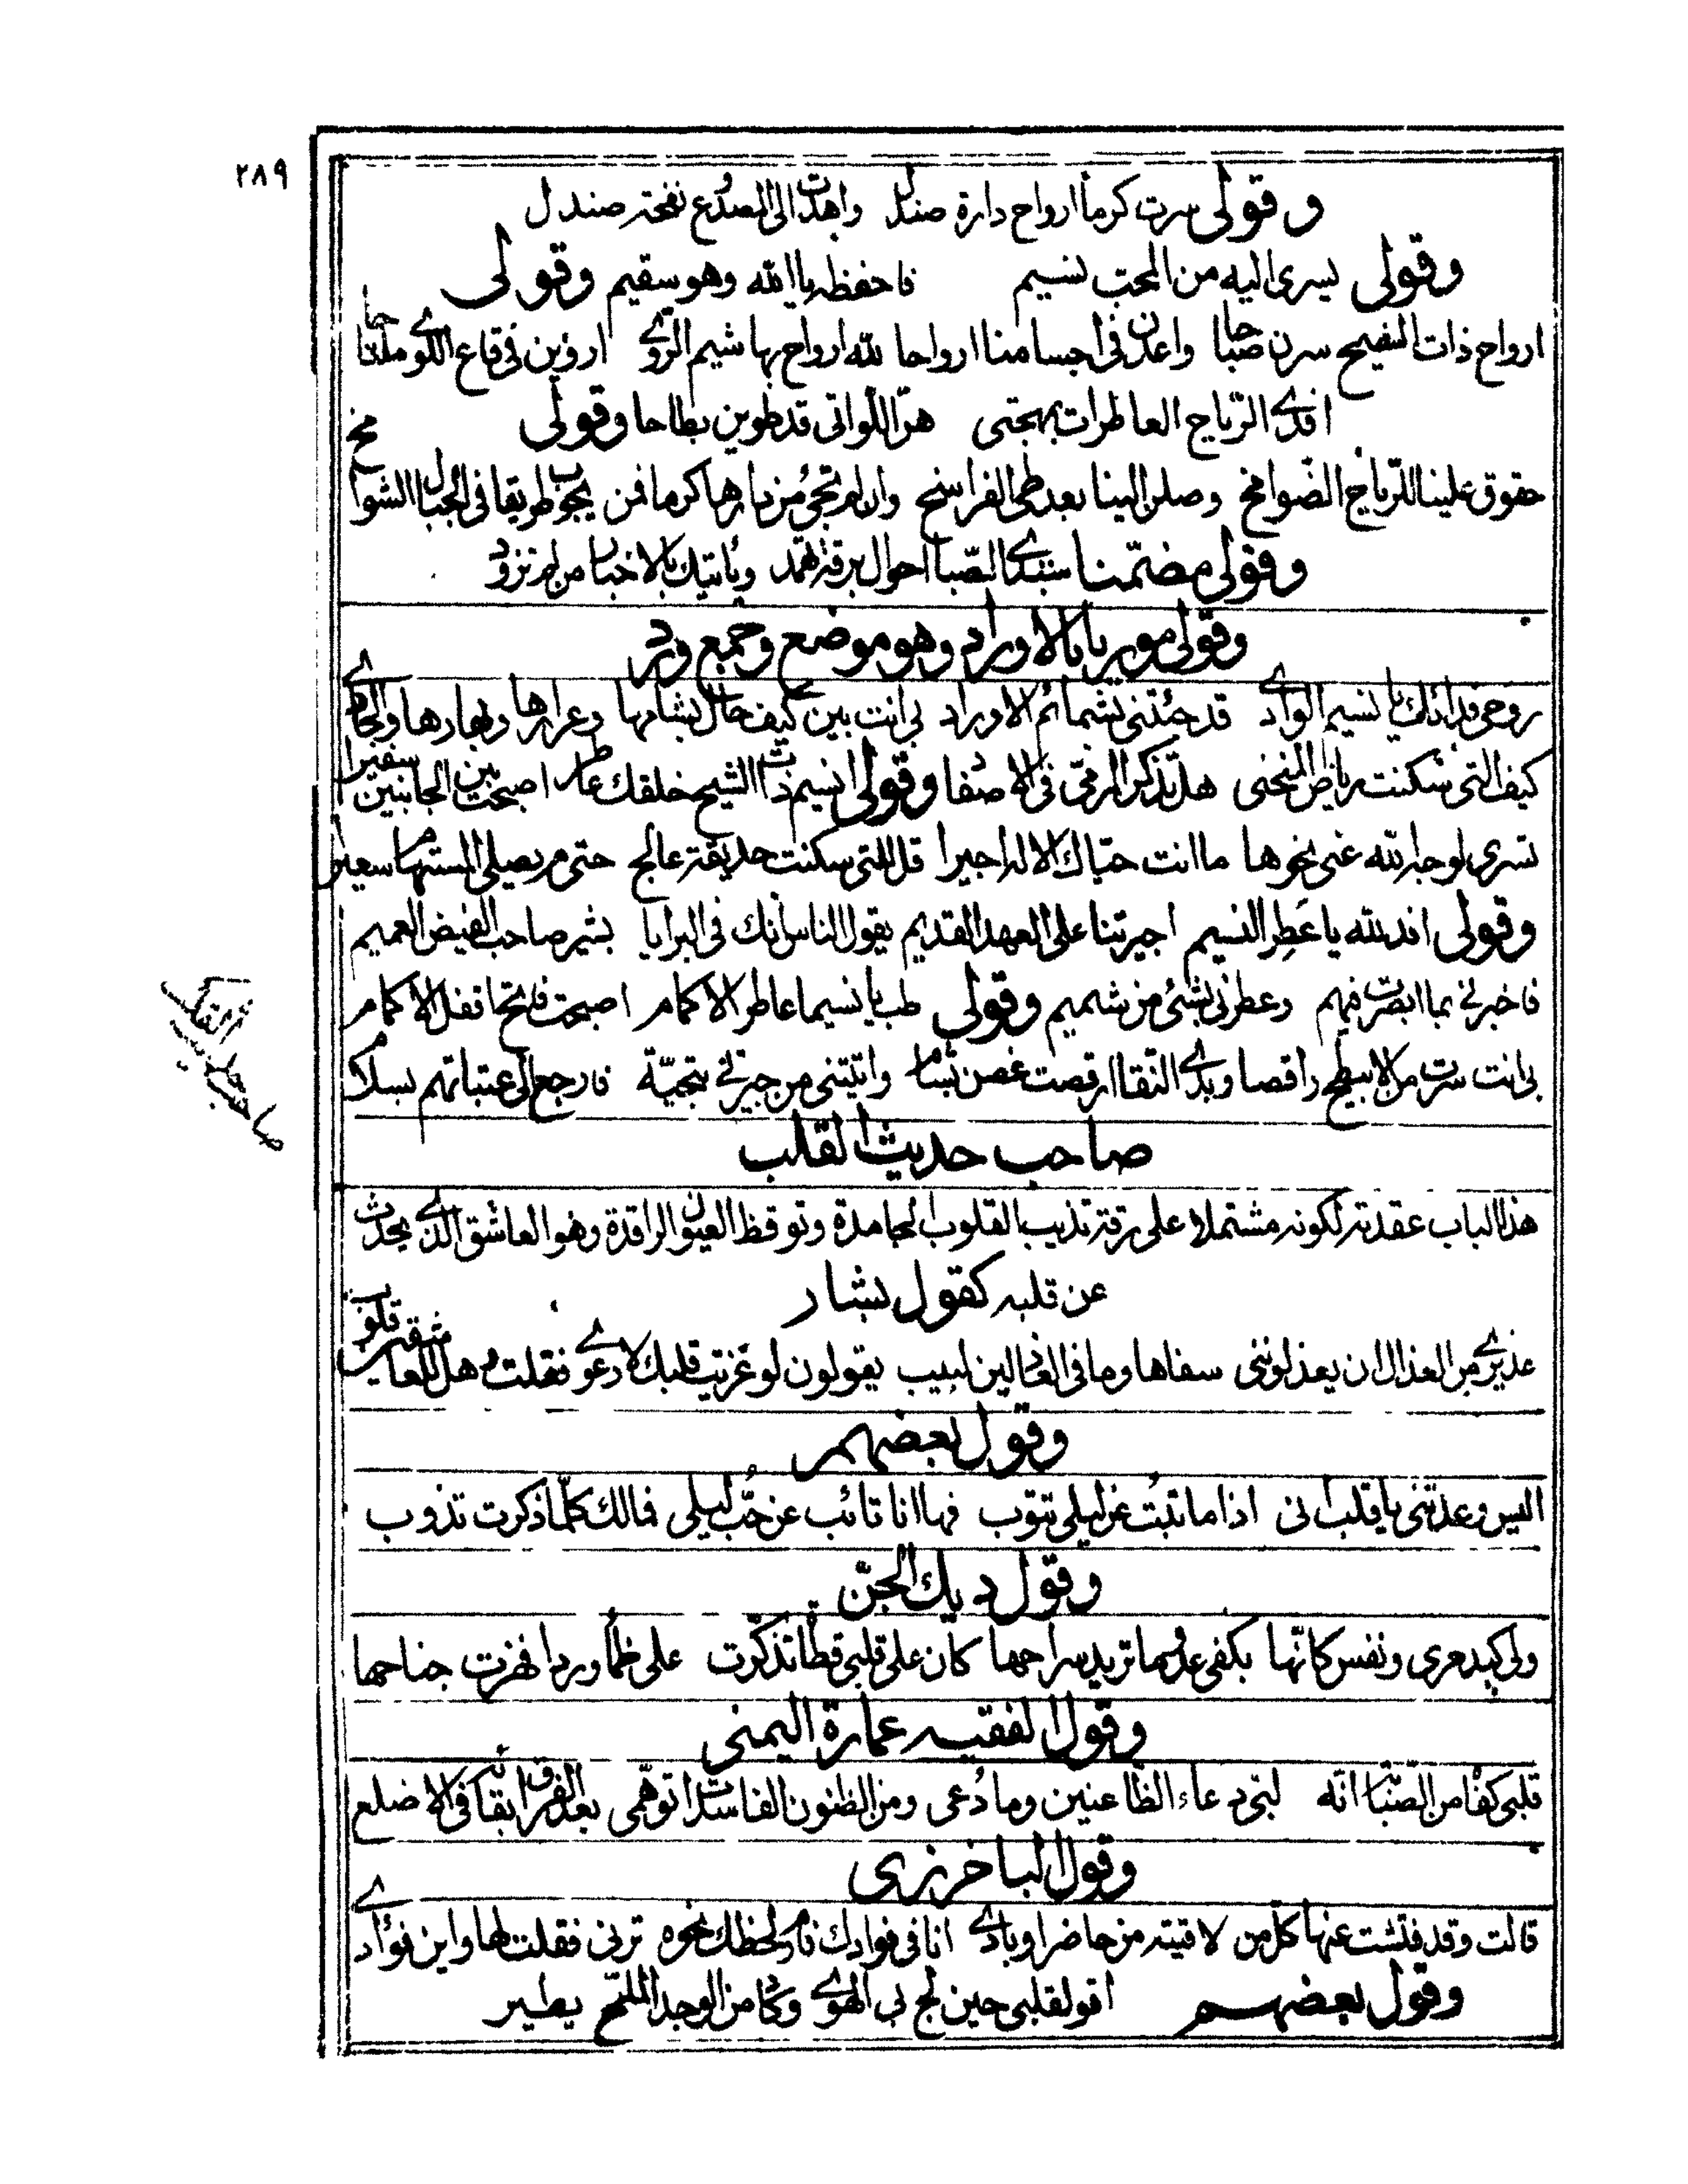 ٢٨٩
وقولي سرت كرما ارواح دارة صندل واهدت الى المصدوع نفحة صندل
وقولي يسري اليه من المحب نسيم فاحفظه يا الله وهو سقيم وقولي
ارواح ذات الشيح سرن صباحا واعدن في اجسامنا ارواحا لله ارواح بها شيم الروى اروين في قاع اللوى ملتاحا
افدي الرياح العاطرات بمهجتي هن اللواتي قد طوين بطاحا وقولي
حقوق علينا للرياح الضوامخ وصلن الينا بعد طي الفراسخ وان لم تجئ من دارها كرما فمن يجوب طريقا في الجبال الشوامخ
وقولي مضمنا ستبدي الصبا احوال برقة ثهمد ويأتيك بالاخبار من لم تزود
وقولي موريا بالاوراد وهو موضع وجمع ورد
روحي فداؤك يا نسيم الوادي قد جئتني بشمائم الاوراد بي انت بين كيف حال بشامها وعرارها وبهارها والجادي
كيف التي سكنت رياض المنحنى هل تذكر المرمي في الاصفاد وقولي انسيم ذات الشيح خلقك عاطر اصبحت بين الجانبين سفيرا
تسري لوجه الله عني نحوها ما انت حياك الاله اجيرا قل للتي سكنت حديقة عالج حتى م يصلى المستهام سعيرا
وقولي اند لله يا عطر النسيم اجيرتنا على العهد القديم يقول الناس انك في البرايا بشير صاحب الفيض العميم
فاخبرني بما ابصرت فيهم وعطرني بشئ من شميم وقولي طب يا نسيما عاطر الاكمام اصبحت فاتحا قفل الاكمام
بي انت سرت من الابيطح راقصا وبدي النقا ارقصت غصن بشام واتيتني من جيرتي بتحية فارجع الى عتباتهم بسلام
صاحب حديث القلب
صاحب حديث القلب
هذا الباب عقدته لكونه مشتملا على رقة تذيب القلوب الجامدة وتوقظ العيون الراقدة وهو العاشق الذي يحدث
عن قلبه كقول بشار
عذيري من العذال ان يعذلونني سفاها وما في العاذلين لبيب يقولون لو عزيت قلبك لارعوى فقلت وهل للعاشقين قلوب
وقول بعضهم
اليس وعدتني يا قلب اني اذا ما تبت عن ليلى تتوب فها انا تائب عن حب ليلى فما لك كلما ذكرت تذوب
وقول ديك الجن
ولي كبد حرى ونفس كانها بكفي عدو ما تريد سراحها كان على قلبي قطاة تذكرت على ظمأ وردا فهزت جناحها
وقول الفقيه عمارة اليمني
قلبي كفا من الصبابة انه لبى دعاء الظاعنين وما دعي ومن الظنون الفاسدات توهمي بعد الفراق بقاءه في الاضلع
وقول الباخرزي
قالت وقد فتشت عنها كل من لاقيته من حاضر او بادي انا في فوادك فارم لحظك نحوه ترني فقلت لها واين فؤادي
وقول بعضهم اقول لقلبي حين لج بي الهوى وكاد من الوجد الملح يطير